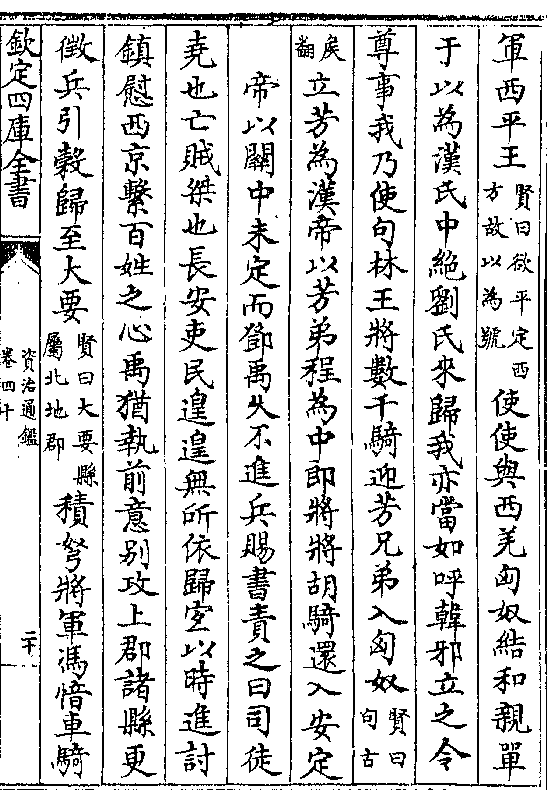 軍西平王賢曰欲平定西方故以為號使使與西羌匈奴結和親單
于以為漢氏中絶劉氏來歸我亦當如呼韓邪立之令
尊事我乃使句林王將數千騎迎芳兄弟入匈奴賢曰句古
矦翻立芳為漢帝以芳弟程為中郎將將胡騎還入安定
帝以關中未定而鄧禹乆不進兵賜書責之曰司徒
堯也亡賊桀也長安吏民遑遑無所依歸宐以時進討
鎮慰西京繫百姓之心禹猶執前意别攻上郡諸縣更
徵兵引榖歸至大要賢曰大要縣屬北地郡積弩將軍馮愔車騎
欽定四庫全書
資治通鑑
卷四十
二十